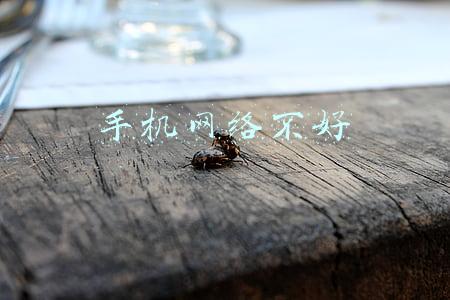 手机网络不好